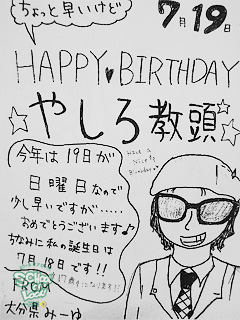 ちょっと早いけど
7月19日
HAPPY♥BIRTHDAY
☆やしろ教頭☆
今年は19日が
日曜日なので
少し早いですが.....
おめでとうございます♪
ちなみに私の誕生日は
7月18日です!!
17歳になります!!
Have a
Nice
Birthday
FROM
大分県みーゆ